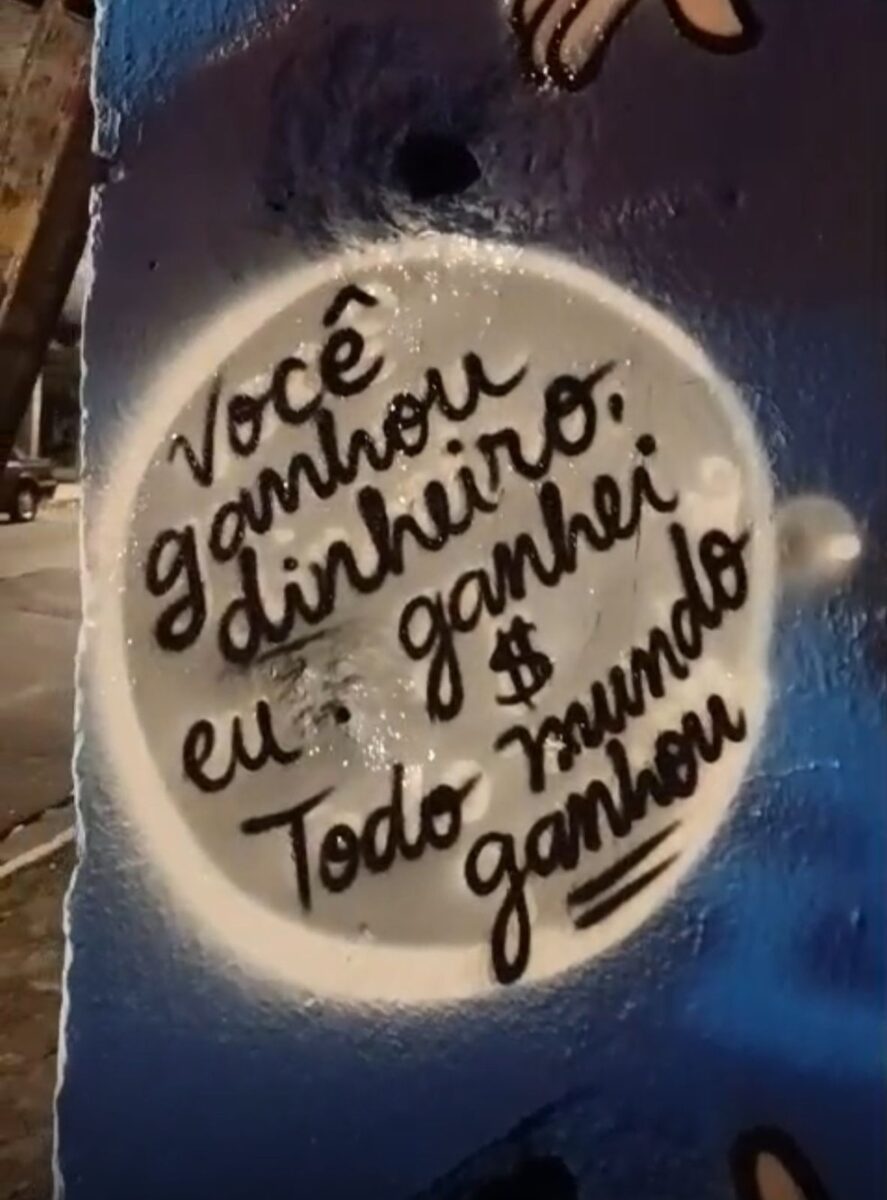 Você
ganhou
dinheiro,
eu. ganhei
$
Todo mundo
ganhou